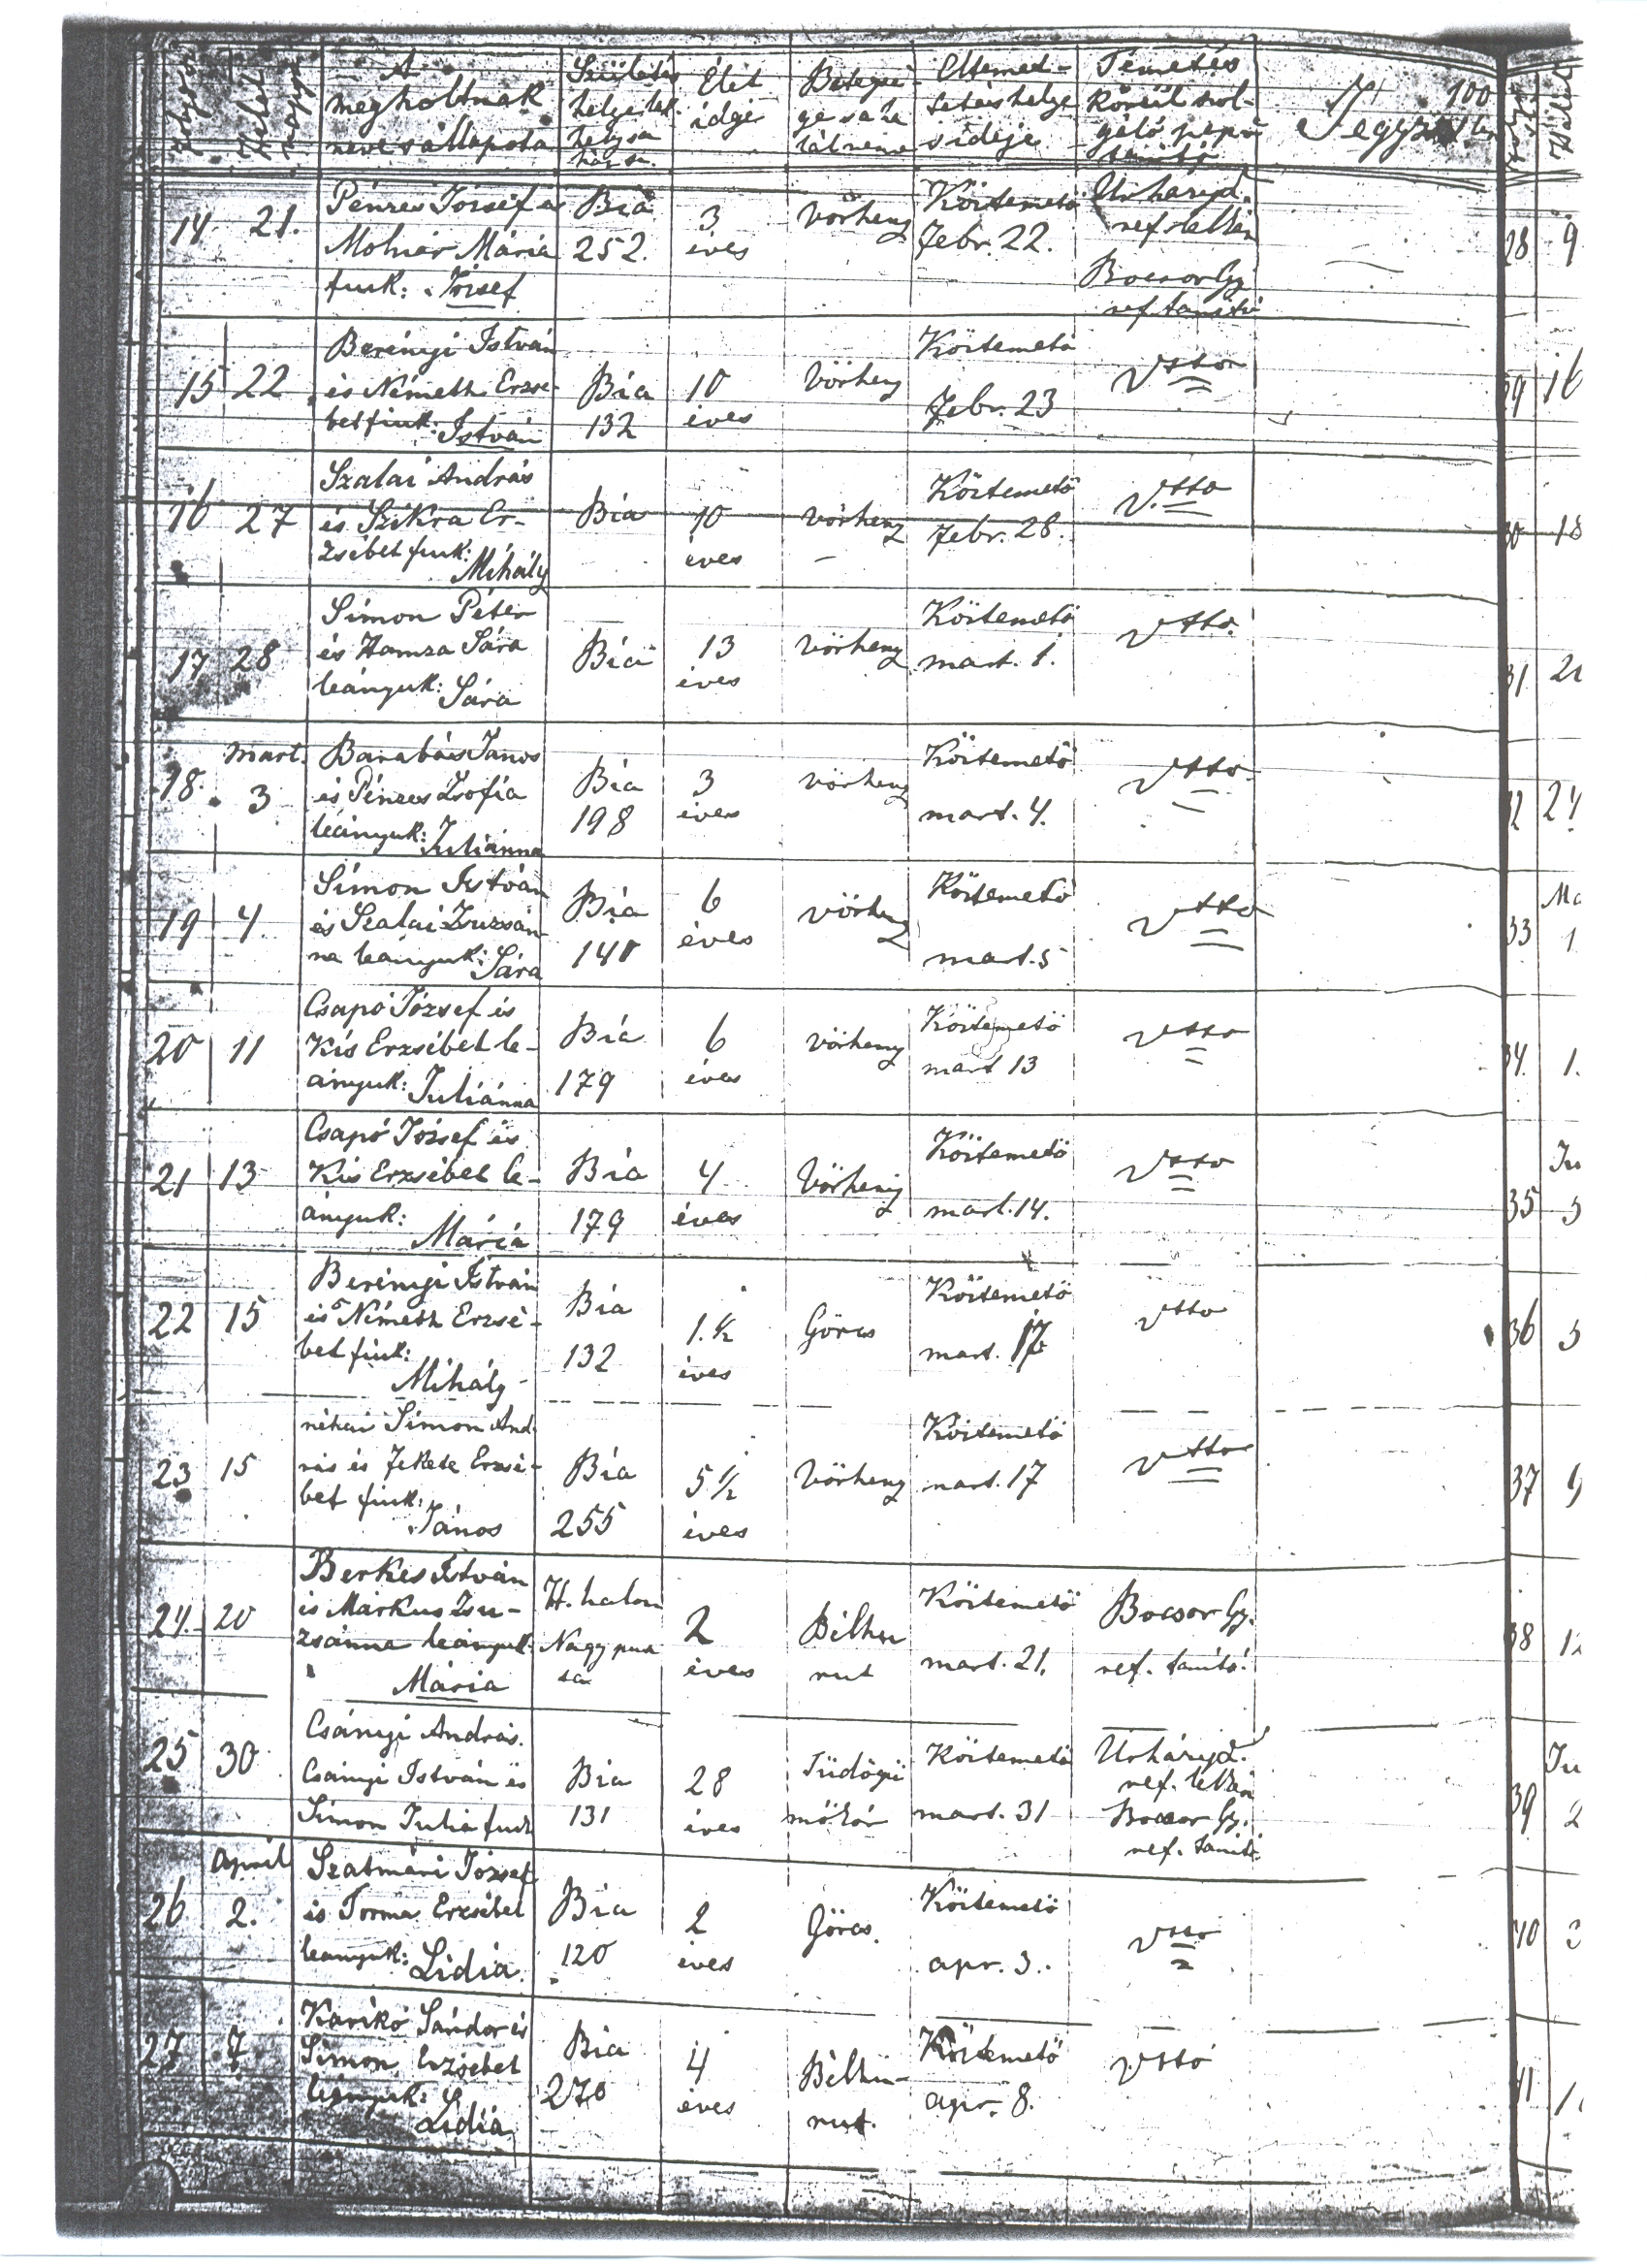 A
megholtnak
neve s állapota
Születés
helye lak
helye s a
ház sz.
Élet
ideje
Betegsé-
ge s a ha
lál neme
Eltemet-
tetés helye
s ideje
Temetés
körül szol-
gáló pap s
tanitó
Jegyzet
100
14 21.
Pénzes József és
Molnár Mária
fiuk: József
Bia
252.
3
éves
Vörheny
Köztemető
Febr. 22.
ref. lelkész
Bocsor Gy
ref. tanitó
15 22
Berényi István
és Németh Erzsé-
bet fiuk: István
Bia
132
10
éves
Vörheny
Köztemető
Febr. 23
16 27
Szalai András
és Szikra Er-
zsébet fiuk:
Mihály
Bia
10
éves
Vörheny
Köztemető
Febr. 28.
17 28
Simon Péter
és Hamza Sára
leányuk: Sára
Bia
13
éves
Vörheny
Köztemető
mart. 1.
18. Mart. 3
Barabás János
és Pénzes Zsófia
leányuk: Juliánna
Bia
198
3
éves
Vörheny
Köztemető
mart. 4.
19 4
Simon István
és Szalai Zsuzsán-
na leányuk: Sára
Bia
140
6
éves
Vörheny
Köztemető
mart. 5
20 11
Csapó József és
Kis Erzsébet le-
ányuk: Juliánna
Bia
179
6
éves
Vörheny
Köztemető
mart 13
21 13
Csapó József és
Kis Erzsébet le-
ányuk:
Mária
Bia
179
4
éves
Vörheny
Köztemető
mart. 14.
22 15
Berényi István
és Németh Erzsé-
bet fiuk:
Mihály
Bia
132
1 ½
éves
Görcs
Köztemető
mart.
23 15
néhai Simon And-
rás és Fekete Erzsé-
bet fiuk:
János
Bia
255
5 ½
éves
Vörheny
Köztemető
mart. 17
24. 20
Berkes István
és Márkus Zsu-
zsánna leányuk
Mária
H. halom
Nagy pusz
ta
2
éves
Bélhu
rut
Köztemető
mart. 21.
Bocsor Gy.
ref. tanitó
25 30
Csányi András.
Csányi István és
Simon Julia fiuk
Bia
131
28
éves
Tüdőgü
mőkór
Köztemető
mart. 31
ref. lelkész
Bocsor Gy.
ref. tanitó
26 April 2.
Szatmári József
és Torma Erzsébet
leányuk: Lidia.
Bia
120
2
éves
Görcs.
Köztemető
apr. 3.
27 7
Karikó Sándor és
Simon Erzsébet
leányuk:
Lidia
Bia
270
4
éves
Bélhu-
rut.
Köztemető
apr. 8.